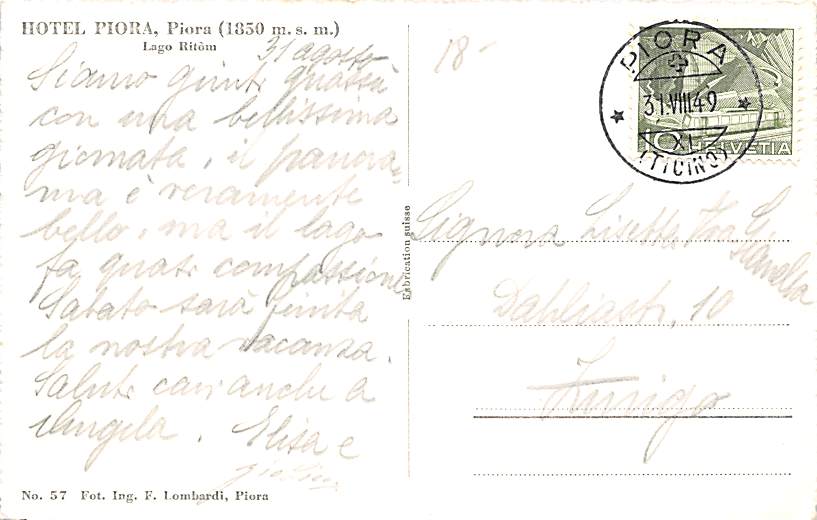 HOTEL PIORA, Piora (1850 m. s. m.)
Lago Ritôm
31 agosto
Siamo giunti quassù
con una bellissima
giornata, il panora-
ma è veramente
bello, ma il lago
fa quasi compassione
Sabato sarà finita
la nostra vacanza.
Saluti cari anche a
Angela. Elisa e
No. 57 Fot. Ing. F. Lombardi, Piora
Fabrication suisse
18-
PIORA
31.VIII.49
XI
(TICINO)
10 HELVETIA
Signora Lisetta
Dahliastr, 10
Zurigo